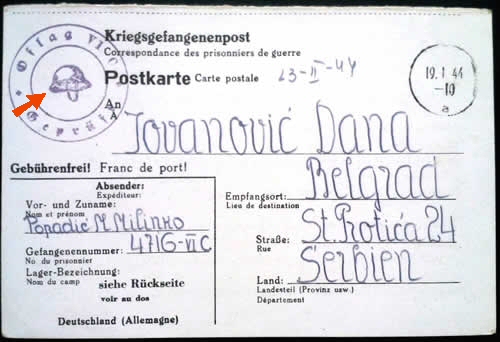 Oflag VI C
Geprüft
Kriegsgefangenenpost
Correspondance des prisonniers de guerre
Postkarte Carte postale
23-II-44
19.1.44
-10
a
An
A
Jovanović Dana
Gebührenfrei! Franc de port!
Belgrad
Absender:
Expéditeur:
Empfangsort:
Lieu de destination
Vor- und Zuname:
Nom et prénom
Popadić M. Milinko
St. Protića 24
Straße:
Rue
Gefangenennummer:
No. du prisonnier
4716-VI C
Serbien
Lager-Bezeichnung:
Nom du camp
siehe Rückseite
voir au dos
Land:
Landesteil (Provinz usw.)
Département
Deutschland (Allemagne)